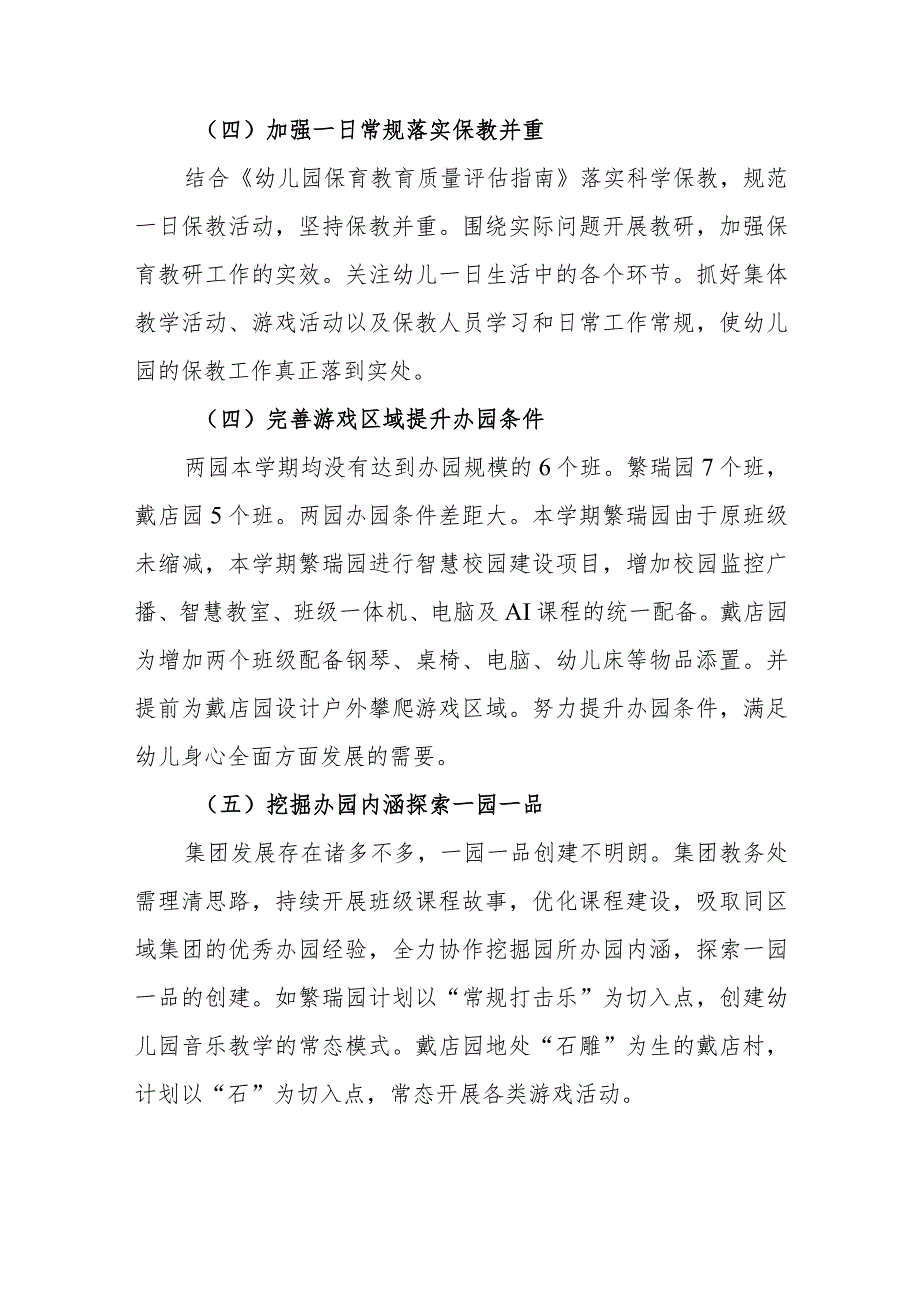 （四）加强一日常规落实保教并重
结合《幼儿园保育教育质量评估指南》落实科学保教，规范
一日保教活动，坚持保教并重。围绕实际问题开展教研，加强保
育教研工作的实效。关注幼儿一日生活中的各个环节。抓好集体
教学活动、游戏活动以及保教人员学习和日常工作常规，使幼儿
园的保教工作真正落到实处。
（四）完善游戏区域提升办园条件
两园本学期均没有达到办园规模的 6 个班。繁瑞园 7 个班，
戴店园 5 个班。两园办园条件差距大。本学期繁瑞园由于原班级
未缩减，本学期繁瑞园进行智慧校园建设项目，增加校园监控广
播、智慧教室、班级一体机、电脑及 AI 课程的统一配备。戴店园
为增加两个班级配备钢琴、桌椅、电脑、幼儿床等物品添置。并
提前为戴店园设计户外攀爬游戏区域。努力提升办园条件，满足
幼儿身心全面方面发展的需要。
（五）挖掘办园内涵探索一园一品
集团发展存在诸多不多，一园一品创建不明朗。集团教务处
需理清思路，持续开展班级课程故事，优化课程建设，吸取同区
域集团的优秀办园经验，全力协作挖掘园所办园内涵，探索一园
一品的创建。如繁瑞园计划以“常规打击乐”为切入点，创建幼
儿园音乐教学的常态模式。戴店园地处“石雕”为生的戴店村，
计划以“石”为切入点，常态开展各类游戏活动。